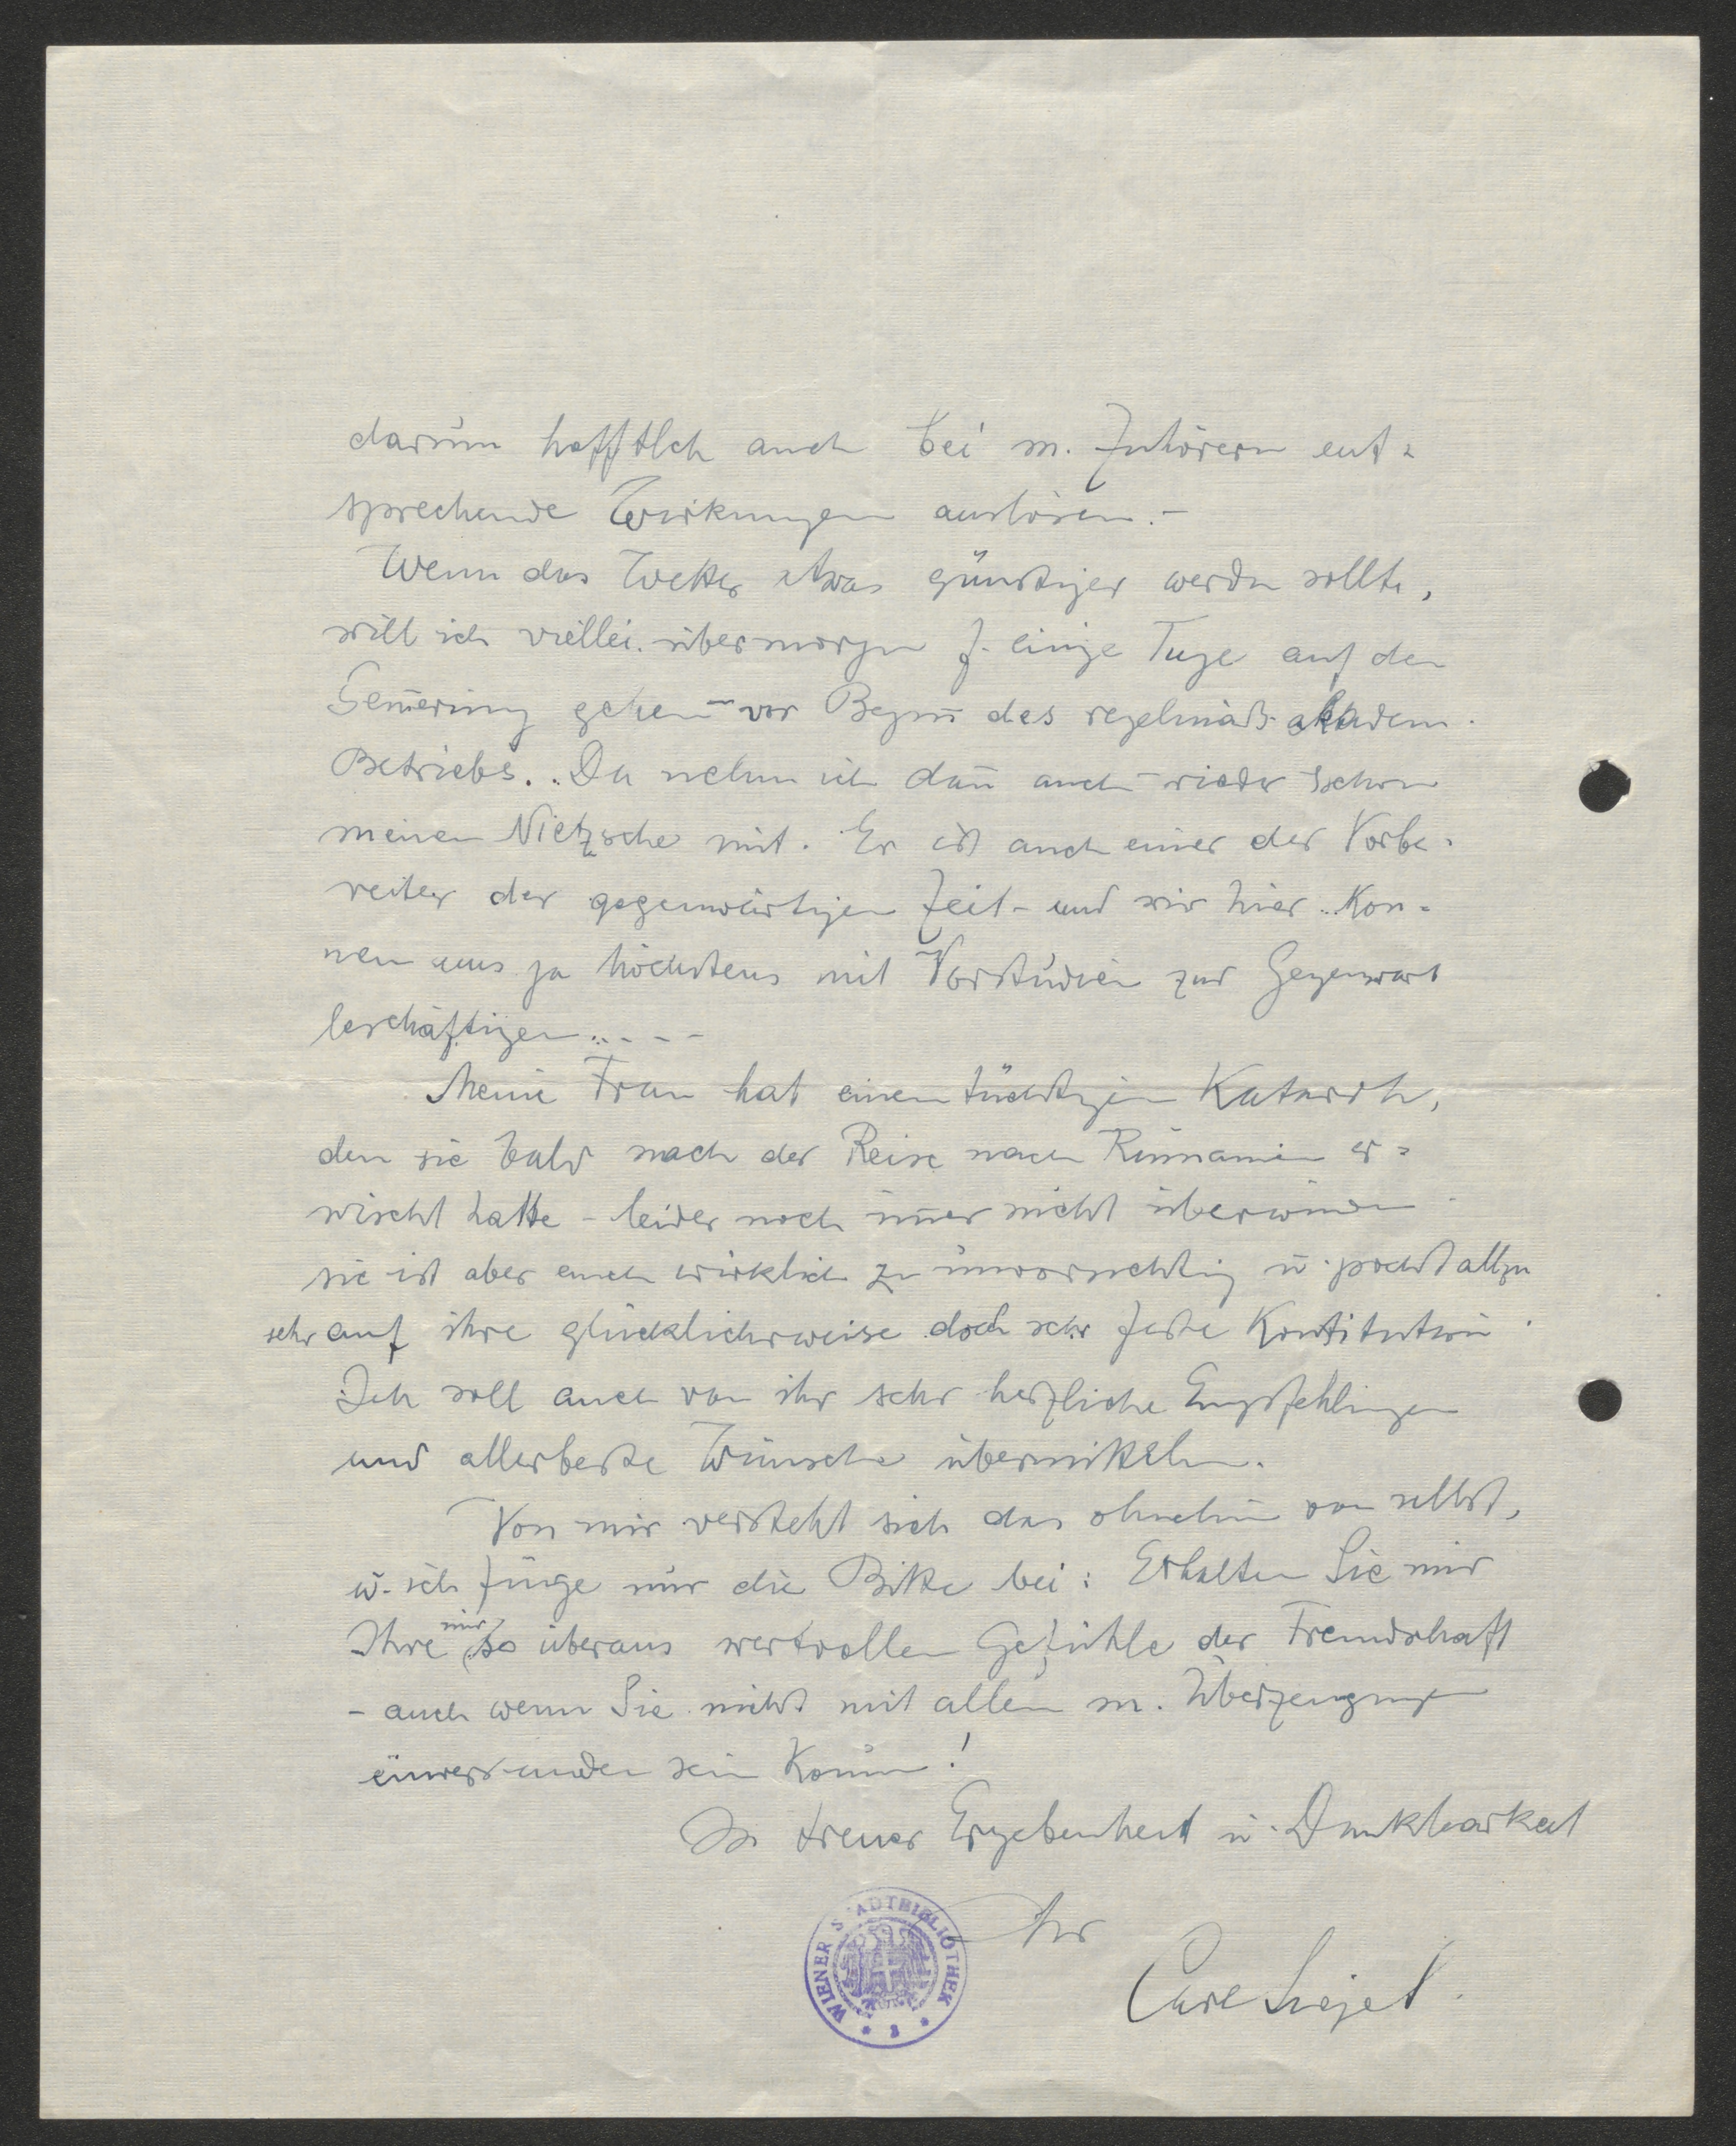 darum hofftlch auch bei m. Zuhörern ent-
sprechende Wirkungen auslösen. -
Wenn das Wetter etwas günstiger werden sollte,
will ich viellei. übermorgen f. einige Tage auf den
Sem̄ering gehen - vor Begin̄ des regelmäß. akadem.
Betriebs... Da nehme ich dan̄ auch wieder schon
meinen Nietzsche mit. Er ist auch einer der Vorbe-
reiter der gegenwärtigen Zeit - und wir hier .. kön-
nen uns ja höchstens mit Vorstudien zur Gegenwart
beschäftigen .. - - -
Meine Frau hat einen tüchtigen Katarrh,
den sie bald nach der Reise nach Rumänien er-
wischt hatte - leider noch im̄er nicht überwunden
sie ist aber auch wirklich zu unvorsichtig u. pocht allzu
sehr auf ihre glücklicherweise doch sehr feste Konstitution.
Ich soll auch von ihr sehr herzliche Empfehlungen
und allerbeste Wünsche übermitteln.
Von mir versteht sich das ohnehin von selbst,
u. ich füge nur die Bitte bei: Erhalten Sie mir
Ihre mir so überaus wertvollen Gefühle der Freundschaft
- auch wenn Sie nicht mit allen m. Überzeugungen
einverstanden sein können!
In treuer Ergebenheit u. Dankbarkeit
Ihr
Carl Siegel.
WIENER STADTBIBLIOTHEK